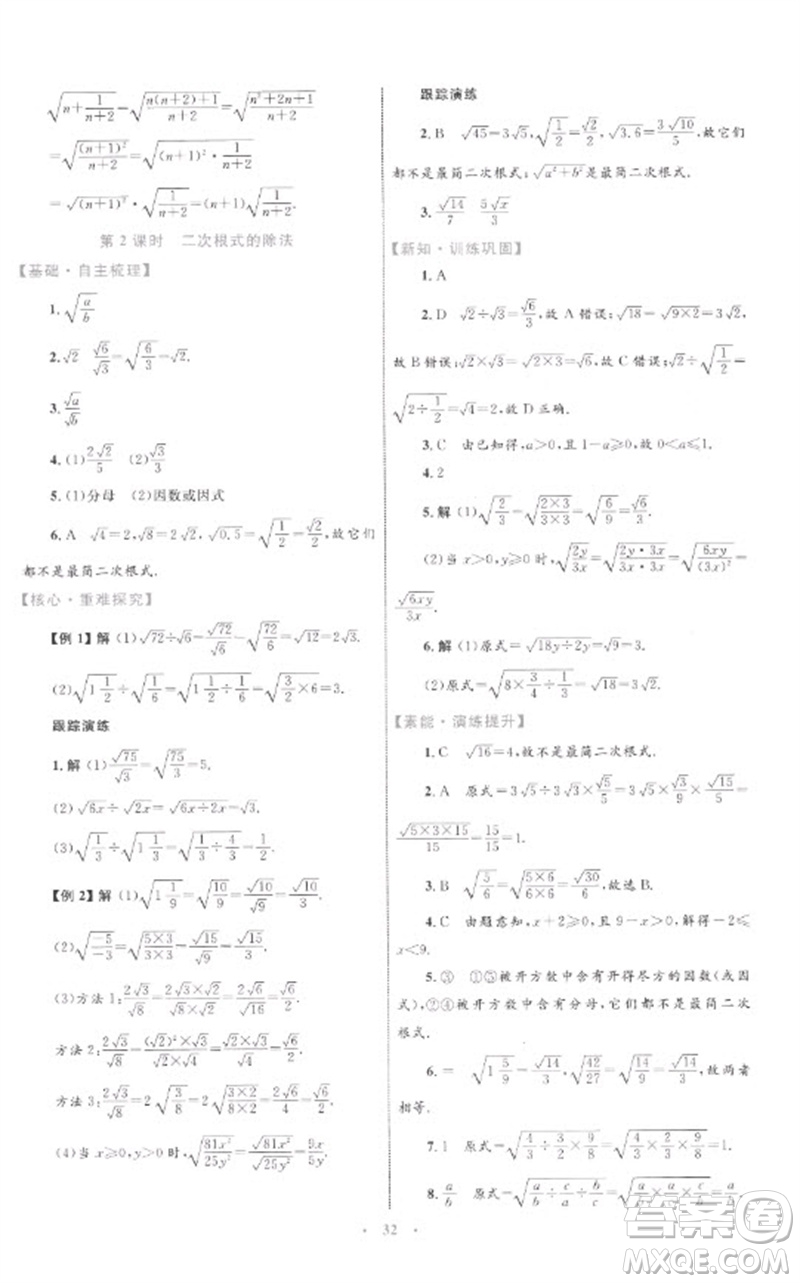 √(n+1/(n+2))=√((n(n+2)+1)/(n+2))=√((n²+2n+1)/(n+2))
=√((n+1)²/(n+2))=√((n+1)²·1/(n+2))
=√(n+1)²·√(1/(n+2))=(n+1)√(1/(n+2)).
第2课时 二次根式的除法
【基础·自主梳理】
1.√(a/b)
2.√2 √6/√3=√(6/3)=√2.
3.√a/√b
4.(1)2√2/5 (2)√3/2
5.(1)分母 (2)因数或因式
6.A √4=2,√8=2√2,√0.5=√(1/2)=√2/2,故它们
都不是最简二次根式.
【核心·重难探究】
【例1】解 (1)√72÷√6=√72/√6=√(72/6)=√12=2√3.
(2)√(1 1/2)÷√(1/6)=√(1 1/2÷1/6)=√(3/2×6)=3.
跟踪演练
1.解 (1)√75/√3=√(75/3)=5.
(2)√6x÷√2x=√(6x÷2x)=√3.
(3)√(1/3)÷√(1 1/3)=√(1/3÷4/3)=1/2.
【例2】解 (1)√(1 1/9)=√(10/9)=√10/√9=√10/3.
(2)√(-5/-3)=√((5×3)/(3×3))=√15/√9=√15/3.
(3)方法1:2√3/√8=2√3/2√2=√3/√2=√6/2.
方法2:2√3/√8=2√3/2√2=(√3×√2)/(√2×√2)=√6/2.
方法3:2√3/√8=2√(3/8)=2√((3×2)/(8×2))=√6/2.
(4)当x≥0,y>0时,√(81x²/25y²)=√81x²/√25y²=9x/5y.
跟踪演练
2.B √45=3√5,√(1/2)=√2/2,√3.6=3√10/5,故它们
都不是最简二次根式;√(a²+b²)是最简二次根式.
3.√14/7 5√x/x
【新知·训练巩固】
1.A
2.D √2÷√3=√6/3,故A错误;√18=√(9×2)=3√2,
故B错误;√2×√3=√(2×3)=√6,故C错误;√2÷√(1/2)=
√(2÷1/2)=√4=2,故D正确.
3.C 由已知得,a>0,且1-a≥0,故0<a≤1.
4.2
5.解 (1)√(2/3)=√((2×3)/(3×3))=√(6/9)=√6/3.
(2)当x>0,y≥0时,√(2y/3x)=√((2y·3x)/(3x·3x))=√(6xy/(3x)²)=
√6xy/3x.
6.解 (1)原式=√(18y÷2y)=√9=3.
(2)原式=√(8×3/4÷1/3)=√18=3√2.
【素能·演练提升】
1.C √16=4,故不是最简二次根式.
2.A 原式=3√5÷3√5×√5/√9=3√5×√3/9×√5/√5=
√(5×3×15)/15=15/15=1.
3.B √(5/6)=√((5×6)/(6×6))=√30/6,故选B.
4.C 由题意知,x+2≥0,且9-x>0,解得-2≤
x<9.
5.③ ①⑤被开方数中含有开得尽方的因数(或因
式),②④被开方数中含有分母,它们都不是最简二次
根式.
6.= √(1 5/9)=√14/3,√(42/27)=√(14/9)=√14/3,故两者
相等.
7.1 原式=√(4/3÷3/2×9/8)=√(4/3×2/3×9/8)=1.
·32·
答案卷
MXQE.COM